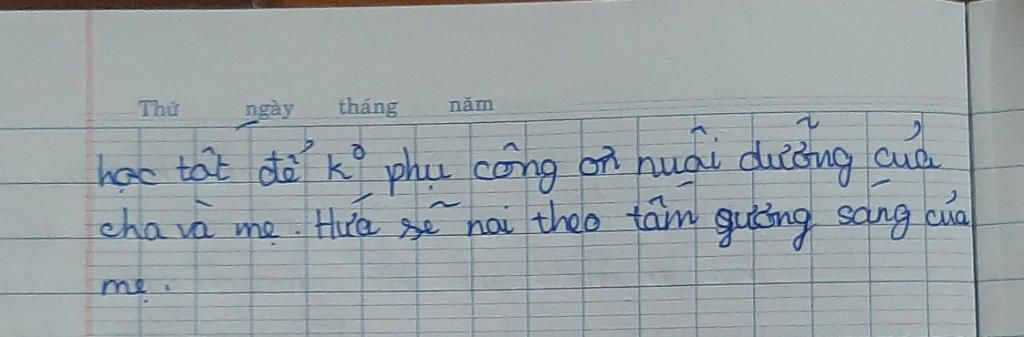 Thứ ngày tháng năm
học tốt để k° phụ công ơn nuôi dưỡng của
cha và mẹ. Hứa sẽ noi theo tấm gương sáng của
mẹ.